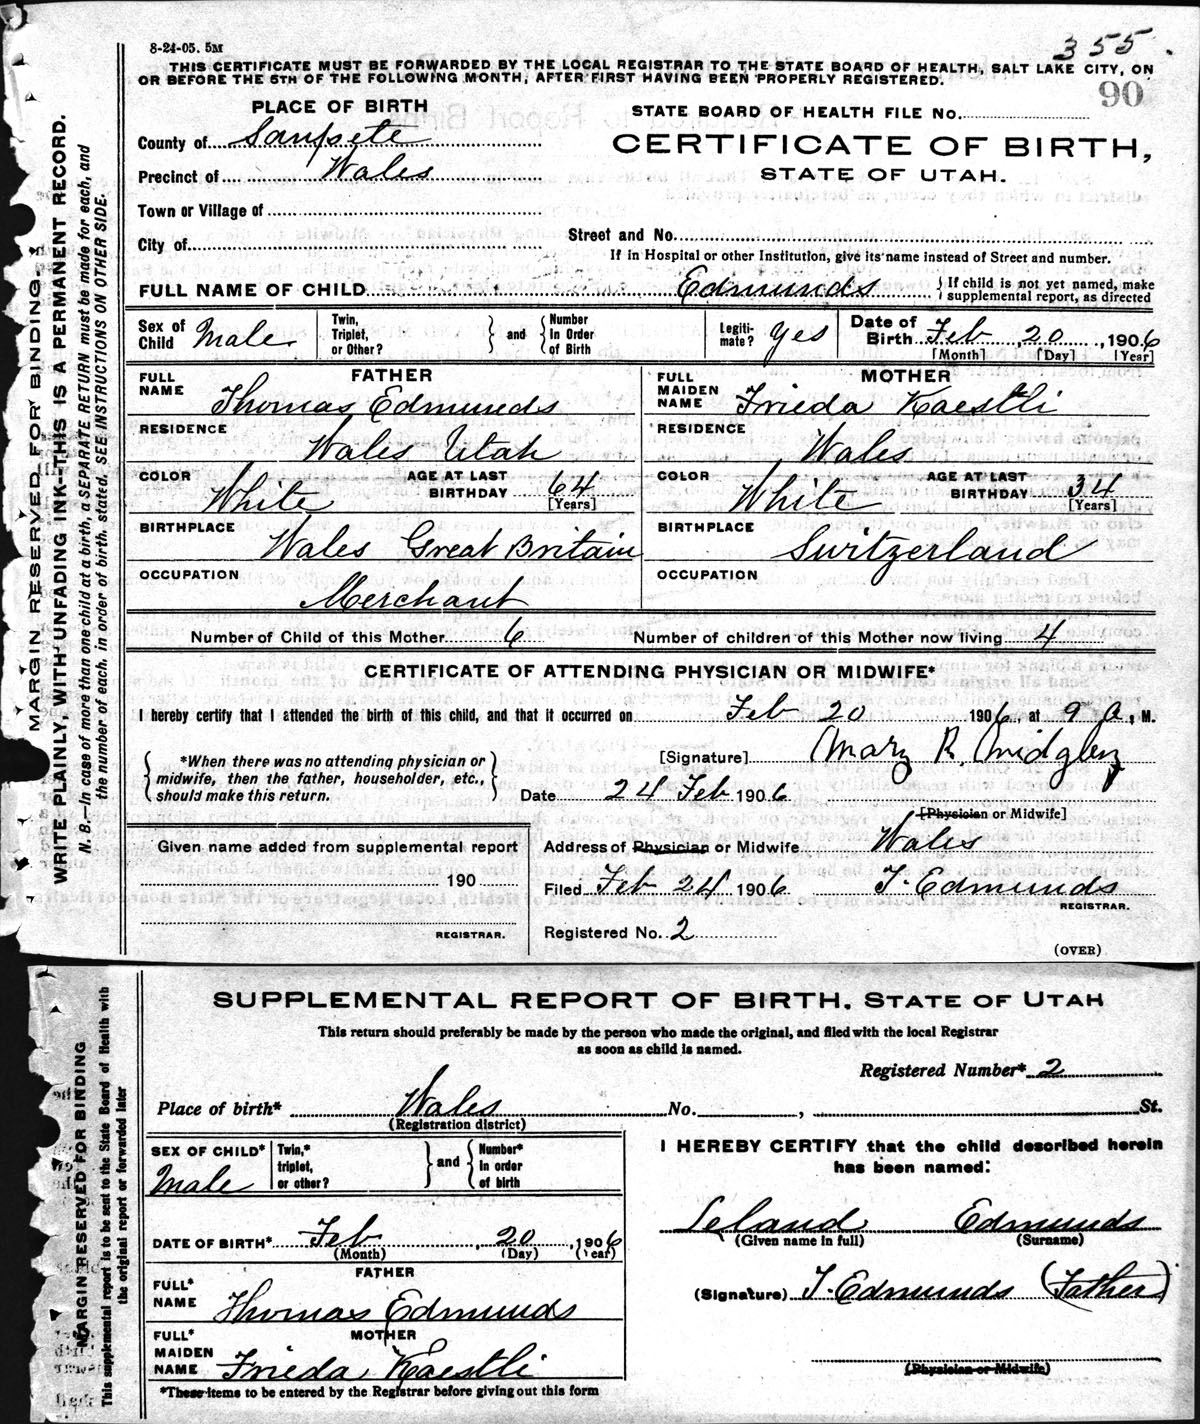 8-24-05. 5M
355.
THIS CERTIFICATE MUST BE FORWARDED BY THE LOCAL REGISTRAR TO THE STATE BOARD OF HEALTH, SALT LAKE CITY, ON
OR BEFORE THE 5TH OF THE FOLLOWING MONTH, AFTER FIRST HAVING BEEN PROPERLY REGISTERED.
90
PLACE OF BIRTH
STATE BOARD OF HEALTH FILE No.
County of Sanpete
CERTIFICATE OF BIRTH,
Precinct of Wales
STATE OF UTAH.
Town or Village of
City of
Street and No.
If in Hospital or other Institution, give its name instead of Street and number.
FULL NAME OF CHILD Edmunds { If child is not yet named, make
supplemental report, as directed
Sex of Child Male
Twin, Triplet, or Other? } and { Number In Order of Birth
Legiti-mate? Yes
Date of Birth Feb, 20, 1906
[Month] [Day] [Year]
FATHER
MOTHER
FULL NAME Thomas Edmunds
FULL MAIDEN NAME Frieda Kaestli
RESIDENCE Wales Utah
RESIDENCE Wales
COLOR White AGE AT LAST BIRTHDAY 64 [Years]
COLOR White AGE AT LAST BIRTHDAY 34 [Years]
BIRTHPLACE Wales Great Britain
BIRTHPLACE Switzerland
OCCUPATION Merchant
OCCUPATION
Number of Child of this Mother 6
Number of children of this Mother now living 4
CERTIFICATE OF ATTENDING PHYSICIAN OR MIDWIFE*
I hereby certify that I attended the birth of this child, and that it occurred on Feb 20 1906, at 9 A, M.
{ *When there was no attending physician or
midwife, then the father, householder, etc.,
should make this return. }
[Signature] Mary R. Midgley
Date 24 Feb 1906
[Physician or Midwife]
Given name added from supplemental report
Address of Physician or Midwife Wales
190
Filed Feb 24 1906 T. Edmunds
REGISTRAR.
REGISTRAR.
Registered No. 2
(OVER)
MARGIN RESERVED FOR BINDING.
WRITE PLAINLY, WITH UNFADING INK—THIS IS A PERMANENT RECORD.
N. B.—In case of more than one child at a birth, a SEPARATE RETURN must be made for each, and
the number of each, in order of birth, stated. SEE INSTRUCTIONS ON OTHER SIDE.
SUPPLEMENTAL REPORT OF BIRTH. STATE OF UTAH
This return should preferably be made by the person who made the original, and filed with the local Registrar
as soon as child is named.
Registered Number* 2
Place of birth* Wales No. , St.
(Registration district)
SEX OF CHILD* Male
Twin,* triplet, or other? } and { Number* In order of birth
I HEREBY CERTIFY that the child described herein
has been named:
Leland Edmunds
(Given name in full) (Surname)
DATE OF BIRTH* Feb, 20, 1906
(Month) (Day) (Year)
FATHER
FULL* NAME Thomas Edmunds
(Signature) T. Edmunds (Father)
MOTHER
FULL* MAIDEN NAME Frieda Kaestli
(Physician or Midwife)
*These items to be entered by the Registrar before giving out this form
MARGIN RESERVED FOR BINDING
This supplemental report is to be sent to the State Board of Health with
the original report or forwarded later